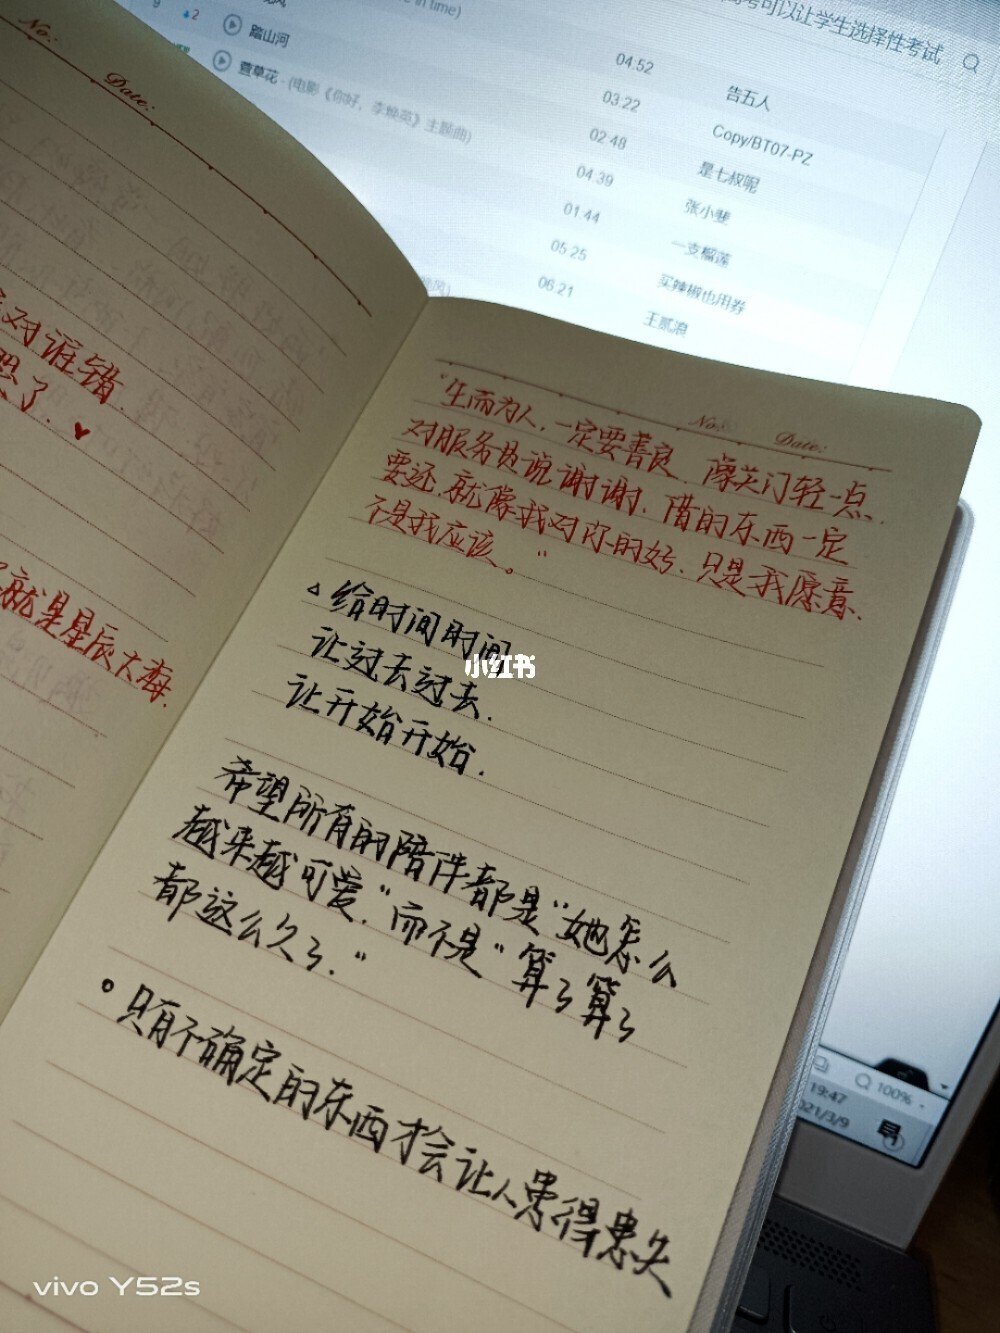 in time)
考可以让学生选择性考试
踏山河
萱草花 - (电影《你好,李焕英》主题曲)
04:52
03:22
02:48
04:39
01:44
05:25
06:21
告五人
Copy/BT07-PZ
是七叔呢
张小斐
一支榴莲
买辣椒也用券
王贰浪
No.:
Date:
对谁错.
了.
就是星辰大海.
No.:
Date:
"生而为人,一定要善良,像关门轻一点,
对服务员说谢谢,借的东西一定
要还,就像我对你的好,只是我愿意,
不是我应该。"
给时间时间
让过去过去.
让开始开始.
希望所有的陪伴都是"她怎么
越来越可爱,"而不是"算了算了
都这么久了."
只有不确定的东西才会让人患得患失
小红书
100%
19:47
021/3/9
vivo Y52s